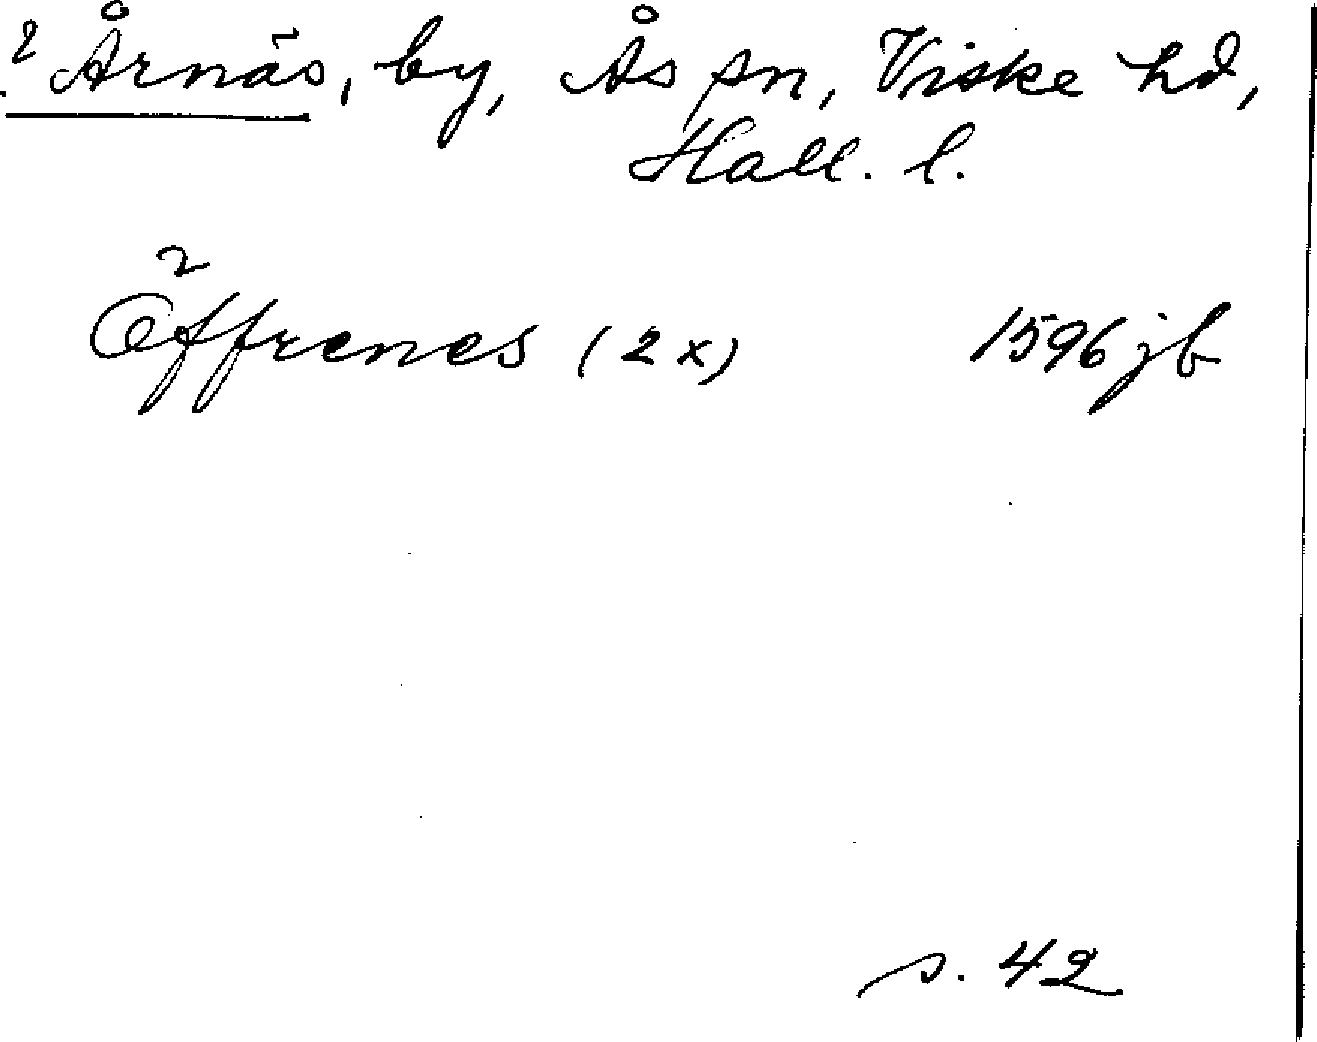 ? Årnäs, by, Ås sn, Viske hd,
Hall. l.
Öffrenes (2x) 1596 jb
s. 42